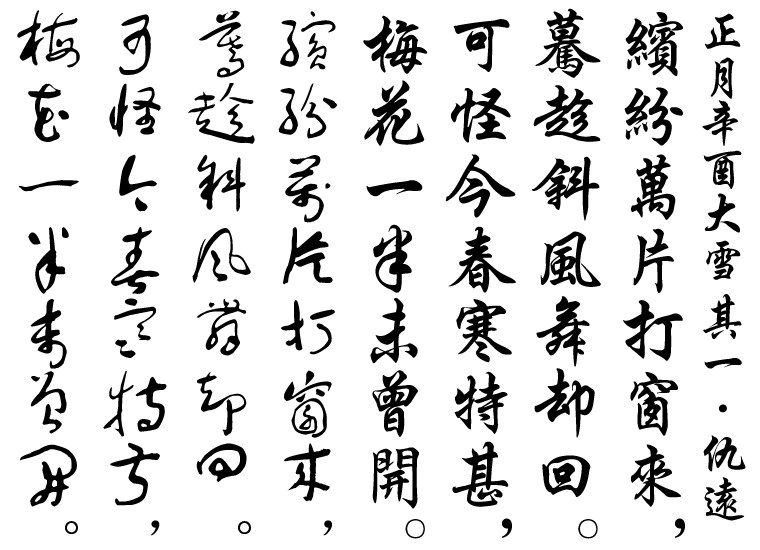 正月辛酉大雪其一・仇遠
繽紛萬片打窗來，
驀趁斜風舞却回。
可怪今春寒特甚，
梅花一半未曾開。
繽紛萬片打窗來，
驀趁斜風舞却回。
可怪今春寒特甚，
梅花一半未曾開。